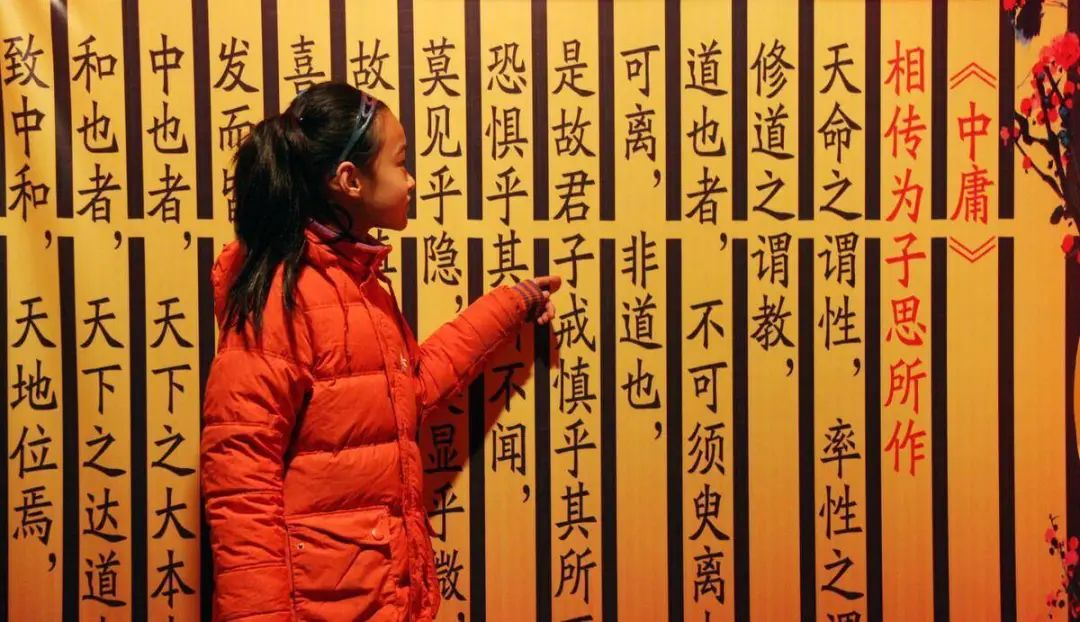 《中庸》
相传为子思所作
天命之谓性，率性之谓
修道之谓教，
道也者，不可须臾离
可离，非道也，
是故君子戒慎乎其所
恐惧乎其不闻，
莫见乎隐，显乎微，
故
喜
发而皆
中也者，天下之大本
和也者，天下之达道
致中和，天地位焉，